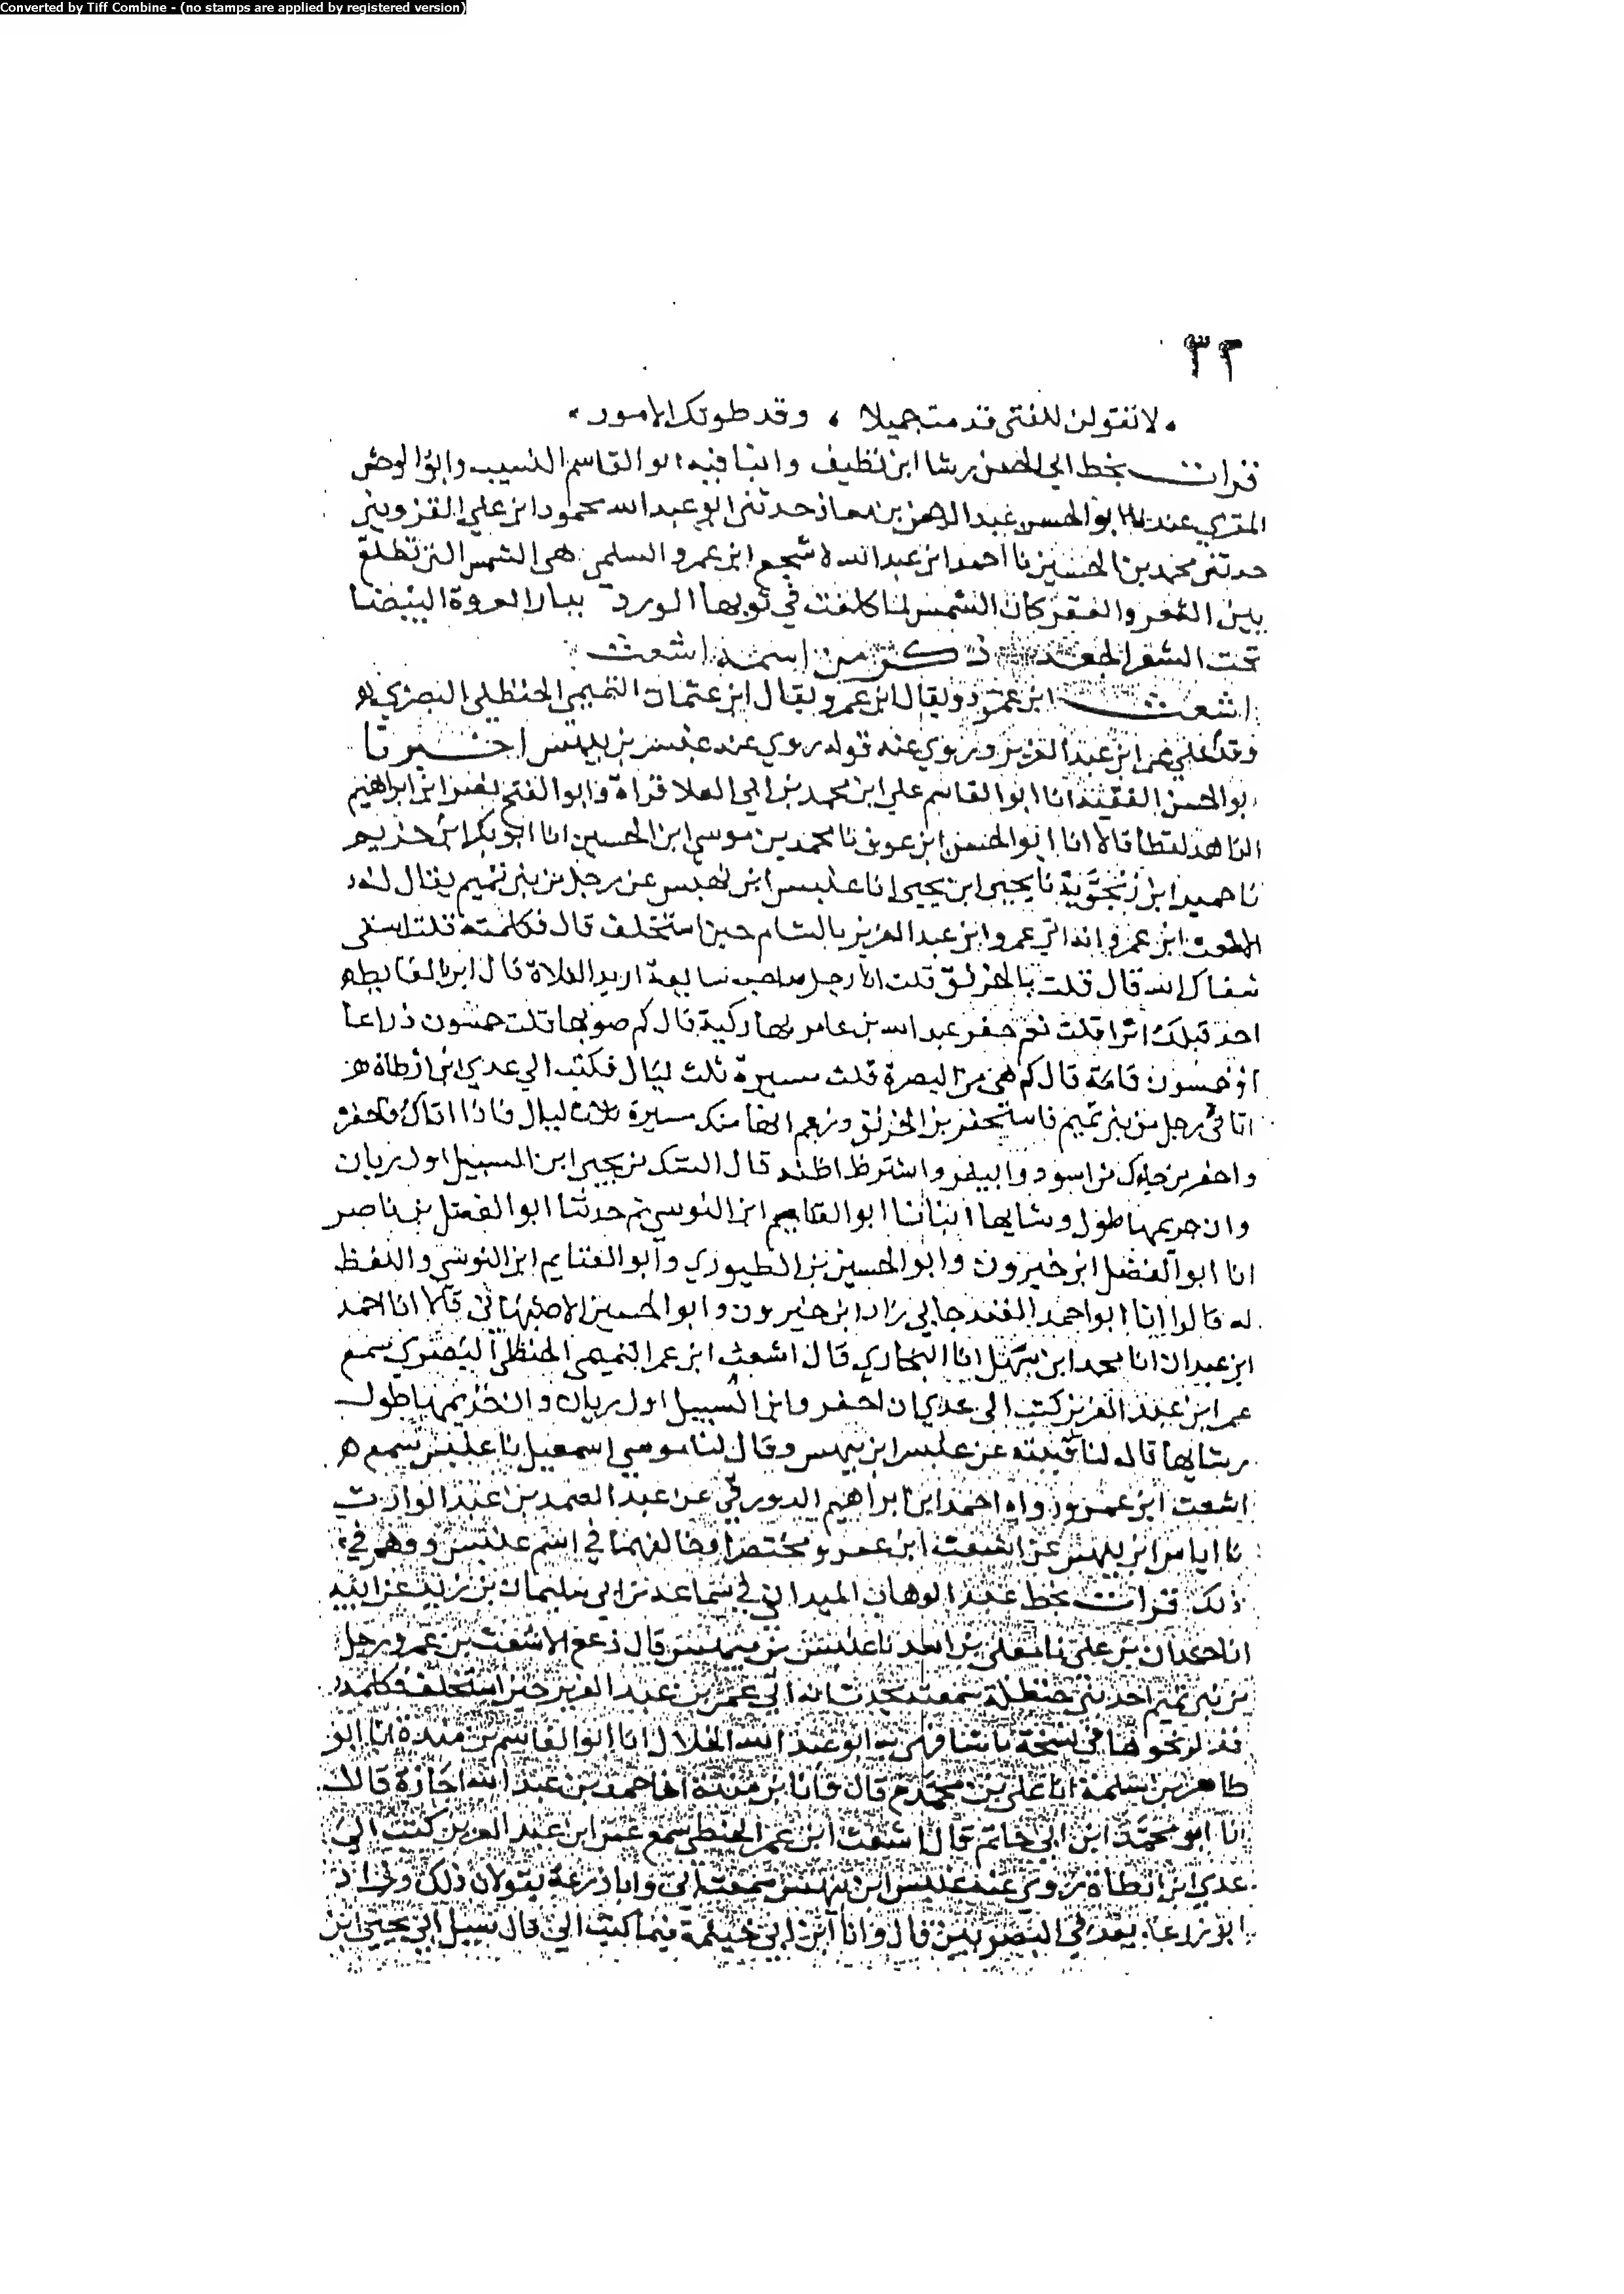 Converted by Tiff Combine - (no stamps are applied by registered version)
٣٢
لا تقولن للفتى قدمت جميلا ، وقد طوتك الامور
قرات بخط ابي الحسن رشا ابن نظيف وانبا فيه ابو القاسم النسيب وابو الوحش
المقري عند ابو الحسن عبد الرحمن بن معاذ حدثني ابو عبد الله محمود ابن علي القزويني
حدثني محمد بن الحسين نا احمد ابن عبد الله لاشجع ابن عمرو السلمي هي الشمس التي تطلع
بين الثغر والعقد كان الشمس لما كلفت في ثوبها الورد العروة البيضا
تحت الشعر الجعد ذكر من اسمه اشعث
اشعث ابن عمرو ويقال ابن عمر ويقال ابن عثمان التميمي الحنظلي البصري
وفد على عمر ابن عبد العزيز وروي عنه قوله روي عنه عنبس بن بيهس اخبرنا
ابو الحسن الفقيه انا ابو القاسم علي ابن محمد بن ابي العلا قراة وابو الفتح نصر ابن ابراهيم
الزاهد لفظا قالا انا ابو الحسن ابن عوف نا محمد بن موسى ابن الحسين انا ابو بكر ابن خزيم
نا حميد ابن زنجوية نا يحيى ابن يحيى انا عنبس ابن بيهس عن رجل من بني تميم يقال له
ابن عمرو انه اتى عمر ابن عبد العزيز بالشام حين استخلف قال فكلمته قلت اسقني
سقاك الله قال قلت بالخرنق قلت انا رجل صاحب اريد الفلاة قال
احد قبلك اثرا قلت نعم حفر عبد الله بن عامر بها ركية قال كم صوبها قلت خمسون ذراعا
او خمسون قامة قال كم هي من البصرة قلت مسيرة ثلث ليال فكتب الي عدي ابن ارطاة
اتاني رجل من بني تميم فاستحفر بن الخرنق وزعم انها منك مسيرة ثلاث ليال فاذا اتاك فاحفره
واحفر من جاك من اسود وابيض واشترط اظنه قال ابن السبيل اول ريان
وان حريمها طول رشايها انبانا ابو الغنايم ابن النرسي ثم حدثنا ابو الفضل بن ناصر
انا ابو الفضل ابن خيرون وابو الحسين بن الطيوري وابو الغنايم ابن النرسي واللفظ
له قالوا انا ابو احمد الغندجاني زاد ابن خيرون وابو الحسين الاصبهاني قالا انا احمد
ابن عبدان انا محمد ابن سهل انا البخاري قال اشعث ابن عمر التميمي الحنظلي البصري سمع
عمر ابن عبد العزيز كتب الى عدي ان احفر وابن السبيل اول ريان وان حريمها طول
رشايها قاله لنا قتيبة عن عنبس ابن بيهس وقال لنا موسى اسمعيل نا عنبس سمع
اشعث ابن عمرو رواه احمد ابن ابراهيم الدورقي عن عبد الصمد بن عبد الوارث
نا اياس ابن بيهس عن اشعث ابن عمرو مختصرا وخالفهما في اسم عنبس ووهم في
ذلك قرات بخط عبد الوهاب الميداني في سماعه من ابي سليمان بن زبر عن ابيه
انا حمدان بن علي نا معلى بن اسد نا عنبس بن بيهس قال زعم الاشعث بن عمرو رجل
من بني تميم احد بني حنظلة سمعته يحدث انه اتى عمر بن عبد العزيز حين استخلف فكلمه
فذكر نحوها في نسخة ما شافهني به ابو عبد الله الخلال انا ابو القاسم بن مندة انا ابو
طاهر بن سلمة انا علي بن محمد ح قال وانا بن مندة انا حمد بن عبد الله اجازة قالا
انا ابو محمد ابن ابي حاتم قال اشعث ابن عمر الحنظلي سمع عمر ابن عبد العزيز كتب الى
عدي ابن ارطاة روى عنه عنبس ابن بيهس سمعت ابي وابا زرعة يقولان ذلك وزاد
ابو زرعة يعد في البصريين قال وانا ابن ابي خيثمة فيما كتب الي قال سيل ابي يحيى ابن